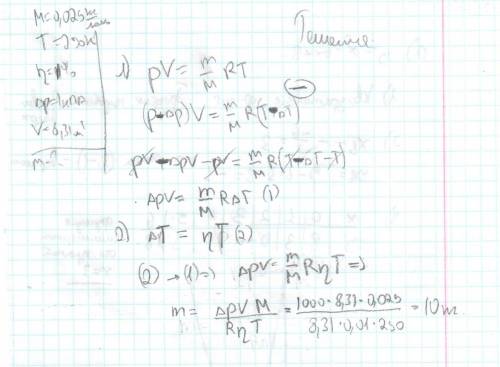 M=0,025 кг/моль
Решение
T=250K
η=1%
Δp=1кПа
V=8,31м³
m-?
1) pV = m/M RT
(p-Δp)V = m/M R(T-ΔT)
pV-ΔpV-pV = m/M R(T-ΔT-T)
ΔpV = m/M RΔT (1)
2) ΔT = ηT (2)
(2) → (1) => ΔpV = m/M RηT =>
m = ΔpVM/RηT = 1000·8,31·0,025/8,31·0,01·250 = 10